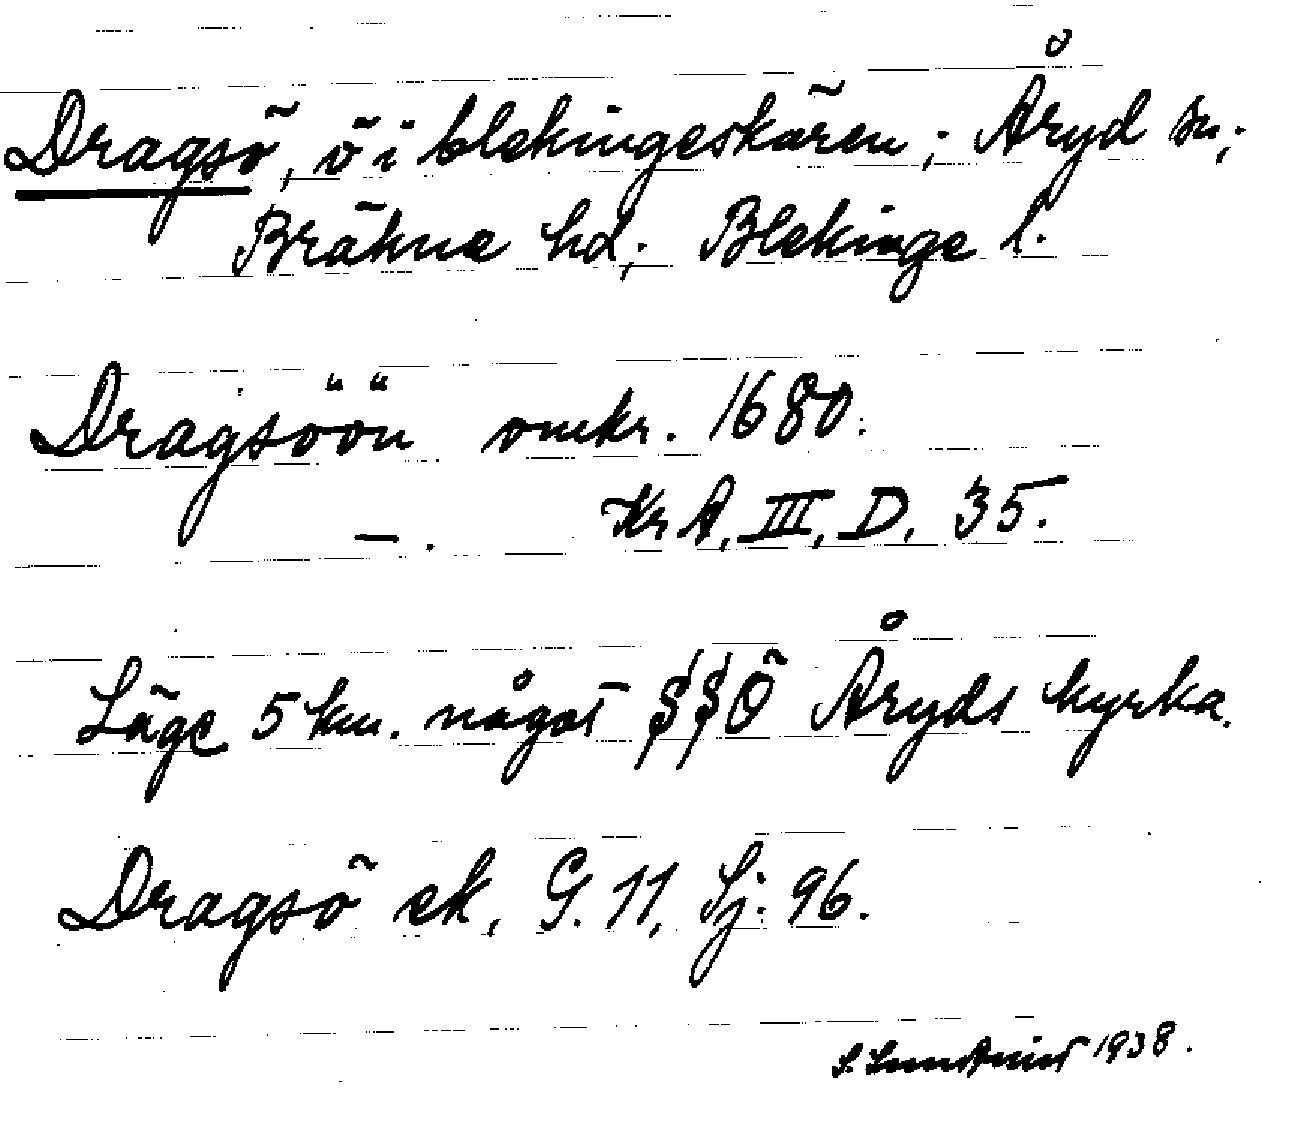 Dragsö, ö i blekingeskären; Åryd sn,;
Bräkne hd; Blekinge l.
Dragsöön omkr. 1680.
—. KrA, III, D, 35.
Läge 5 km. något SSÖ Åryds kyrka.
Dragsö ek, G. 11, Sj. 96.
S. Lundkvist 1938.